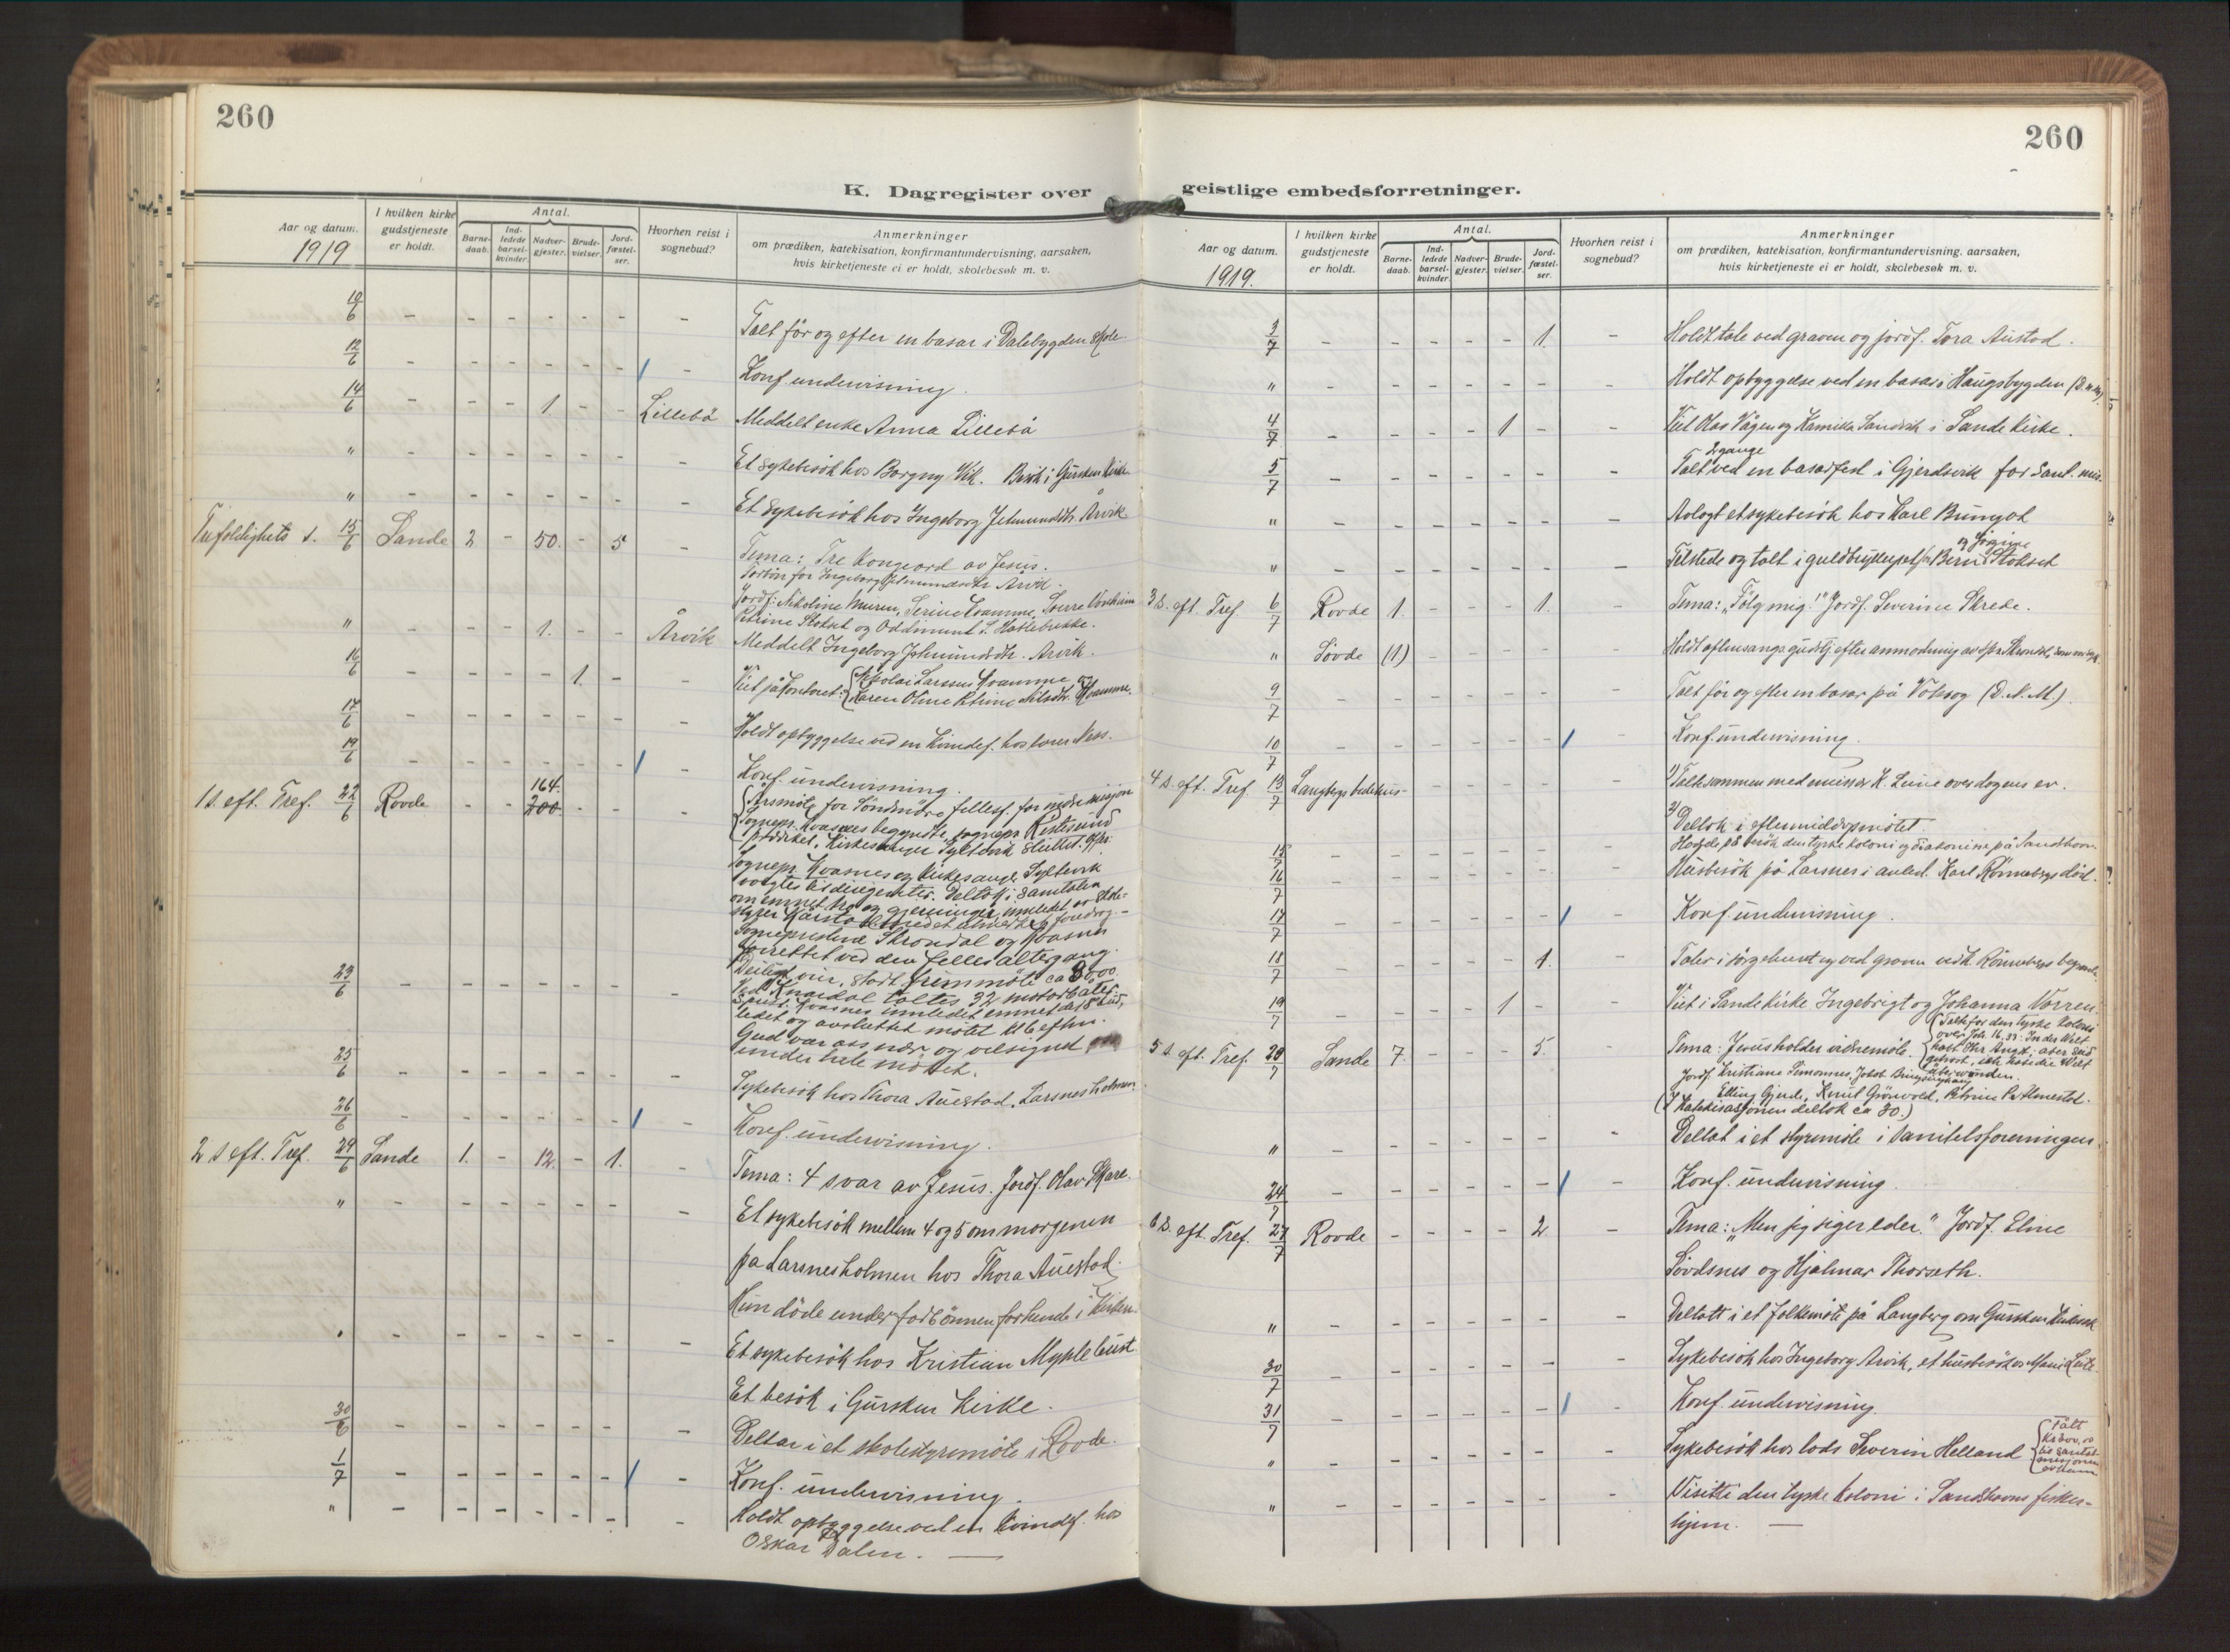 260
K. Dagregister over
Aar og datum.
1919
I hvilken kirke gudstjeneste er holdt.
Antal.
Barnedaab.
Indledede barselkvinder.
Nadvergjester.
Brudevielser.
Jordfæstelser.
Hvorhen reist i sognebud?
Anmerkninger
om prædiken, katekisation, konfirmantundervisning, aarsaken,
hvis kirketjeneste ei er holdt, skolebesøk m. v.
10/6 - - - - - - - Talt för og efter en basar i Dalebygden skole
12/6 - - - - - - - Konf. undervisning.
14/6 - - - 1 - - Lillebö Meddelt enke Anna Lillebö
" - - - - - - - Et sykebesök hos Borgny Vik. Besök i Gursken Kirke
" - - - - - - - Et sykebesök hos Ingeborg Jetmundsdtr. Årvik
Trefoldighets s. 15/6 Sande 2 - 50. - 5 - Tema: Tre kongeord av Jesus.
Forbön for Ingeborg Jetmundsdtr Årvik.
Jordf: Nikoline Muren, Serine Kvamme,
Petrine Stokset og Oddmund S. Haslebrekke.
" - - - 1. - - Årvik Meddelt Ingeborg Jetmundsdtr. Årvik.
16/6 - - - - 1. - - Viet på kontoret: Nikolai Larssen Kvamme og
Karen Oline Petrine Nilsdtr. Kvamme.
17/6 - - - - - - - Holdt opbyggelse ved en kvindef. hos Ness.
19/6 - - - - - - - Konf. undervisning.
1 s. eft. Tref. 22/6 Rovde - - 164. 200. - - -
Årsmöte for Söndmöre fellesf. for indre misjon
Sognepr. Kvasnes begyndte, sognepr. Restesund
prædiket, kirkesanger Syltevik sluttet.
Sognepr. Kvasnes og kirkesanger Syltevik
valgtes til dirigenter. Deltok i samtalen
om emnet tro og gjerninger, innledet av
Sogneprestene Skrondal og Kvasnes
forrettet ved den felles altergang.
23/6 - - - - - - - Deilig vær, stort stevnemöte ca 3000.
Ved Knardal taltes 32 motorbåter.
ledet og avsluttet mötet kl 6 eftm.
Gud var oss nær og velsignet
under hele mötet.
25/6 - - - - - - - Sykebesök hos Thora Austad, Larsnesholmen
26/6 - - - - - - - Konf. undervisning.
2 s eft. Tref. 29/6 Sande 1. - 12. - 1. - Tema: 4 svar av Jesus. Jordf. Olav Skare.
" - - - - - - - Et sykebesök mellem 4 og 5 om morgenen
på Larsnesholmen hos Thora Austad.
Hun döde under forbönnen for hende i kirken.
" - - - - - - - Et sykebesök hos Kristian Myklebust
Et besök i Gursken Kirke.
30/6 - - - - - - - Deltar i et skolestyremöte i Rovde.
1/7 - - - - - - - Konf. undervisning.
" - - - - - - - Holdt opbyggelse ved en kvindef. hos
Oskar Dalen.
260
geistlige embedsforretninger.
Aar og datum.
1919.
I hvilken kirke gudstjeneste er holdt.
Antal.
Barnedaab.
Indledede barselkvinder.
Nadvergjester.
Brudevielser.
Jordfæstelser.
Hvorhen reist i sognebud?
Anmerkninger
om prædiken, katekisation, konfirmantundervisning, aarsaken,
hvis kirketjeneste ei er holdt, skolebesøk m. v.
3/7 - - - - - 1. - Holdt tale ved graven og jordf. Tora Austad.
" - - - - - - - Holdt opbyggelse ved en basar i Haugsbygden (D.n.m.)
4/7 - - - - 1 - - Viet Olas Vågen og Kamilla Sandvik i Sande Kirke.
5/7 - - - - - - - Talt 2 gange ved en basarfest i Gjerdsvik for Sant. mis.
" - - - - - - - Avlagt et sykebesök hos Karl Bungot
" - - - - - - - Tilstede og talt i guldbryllupet for Bern og Jørgine Stokset
3 s. eft. Tref. 6/7 Rovde 1. - - - 1. - Tema: "Fölg mig!" Jordf. Severine Skrede.
" Sövde (1) - - - - - Holdt aftensangs gudstj. efter anmodning av spr. Skrondal,
9/7 - - - - - - - Talt för og efter en basar på Voksøg (D.N.M.)
10/7 - - - - - - - Konf. undervisning.
4 s. eft. Tref. 13/7 Langbergs bedehus - 1) Talt sammen med emissær K. Leine over dagens ev.
2) Deltok i eftermiddagsmötet.
15/7 - - - - - - - besök den tyske koloni og diakonisse på Sandshavn.
16/7 - - - - - - - Husbesök på Larsnes i anled. Karl Rönnebergs död.
17/7 - - - - - - - Konf. undervisning.
18/7 - - - - - 1. - Taler i sörgehuset og ved graven ved K. Rönnebergs begravelse
19/7 - - - - 1 - - Viet i Sande kirke Ingebrigt og Johanna Vorren.
5 s. eft. Tref. 20/7 Sande 7. - - - 5. - Tema: Jesus holder vidnemöte.
Talt for den tyske koloni
over Joh. 16.33: In der Welt
habt Ihr Angst; aber seid
getrost, ich habe die Welt
überwunden.
Jordf. Kristiane Simonnes, Jakob
Elling Gjerde, Knut Grönvold, Petrine P. Almestad.
(I katekisasjonen deltok ca 30.)
" - - - - - - - Deltat i et styremöte i Sanitetsforeningen.
24/7 - - - - - - - Konf. undervisning.
6 s. eft. Tref. 27/7 Rovde - - - - 2 - Tema: "Men jeg siger eder." Jordf. Eline
Sövdsnes og Hjalmar Thorseth.
" - - - - - - - Deltatt i et folkemöte på Langberg om Gursken kirke
30/7 - - - - - - - Sykebesök hos Ingeborg Årvik, et husbesök
31/7 - - - - - - - Konf. undervisning.
" - - - - - - - Sykebesök hos lods Severin Helland
" - - - - - - - Visitte den tyske koloni i Sandshavns fisker-
hjem.